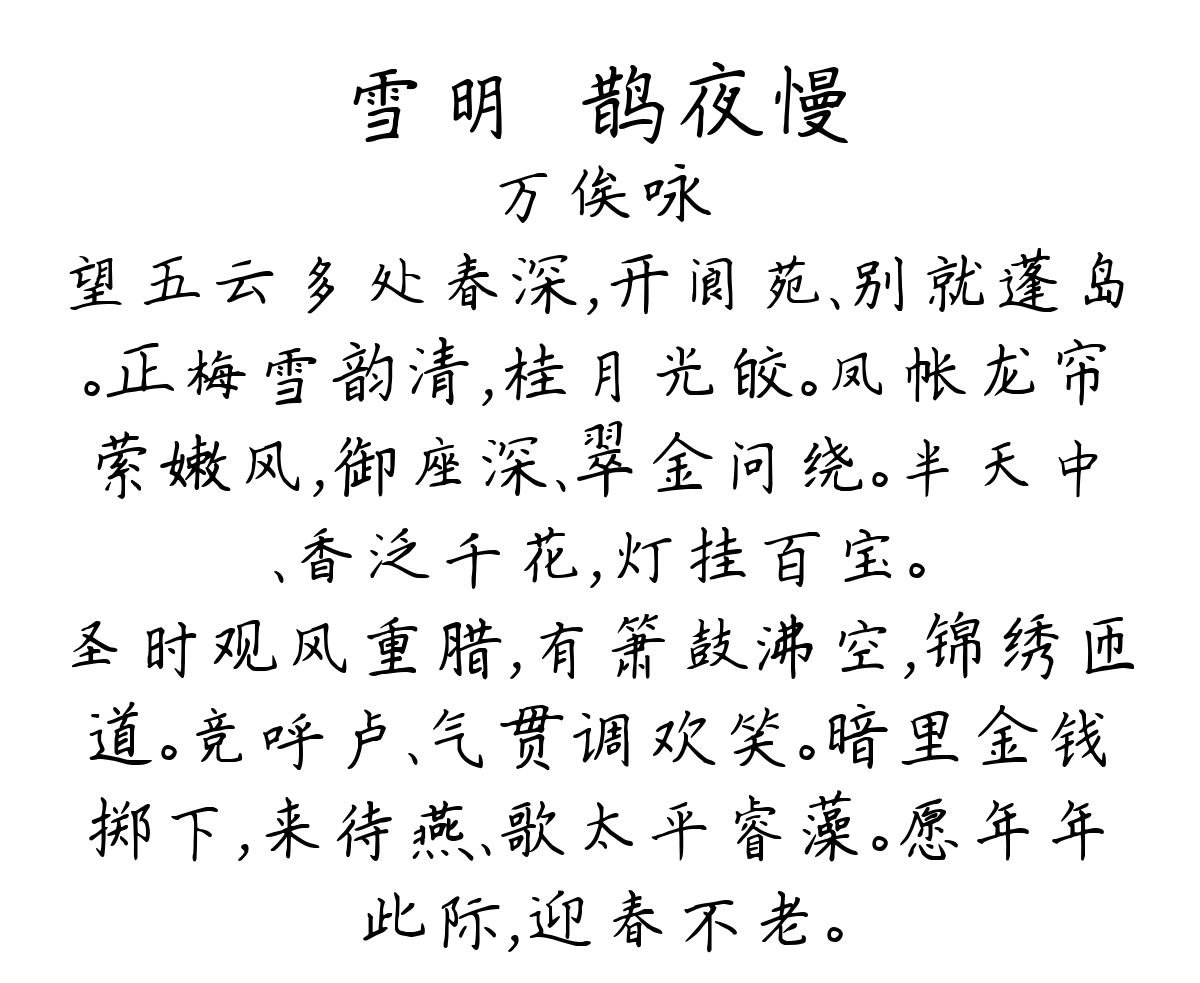 雪明 鹊夜慢
万俟咏
望五云多处春深,开阆苑、别就蓬岛
。正梅雪韵清,桂月光皎。凤帐龙帘
萦嫩风,御座深、翠金问绕。半天中
、香泛千花,灯挂百宝。
圣时观风重腊,有箫鼓沸空,锦绣匝
道。竞呼卢、气贯调欢笑。暗里金钱
掷下,来待燕、歌太平睿藻。愿年年
此际,迎春不老。